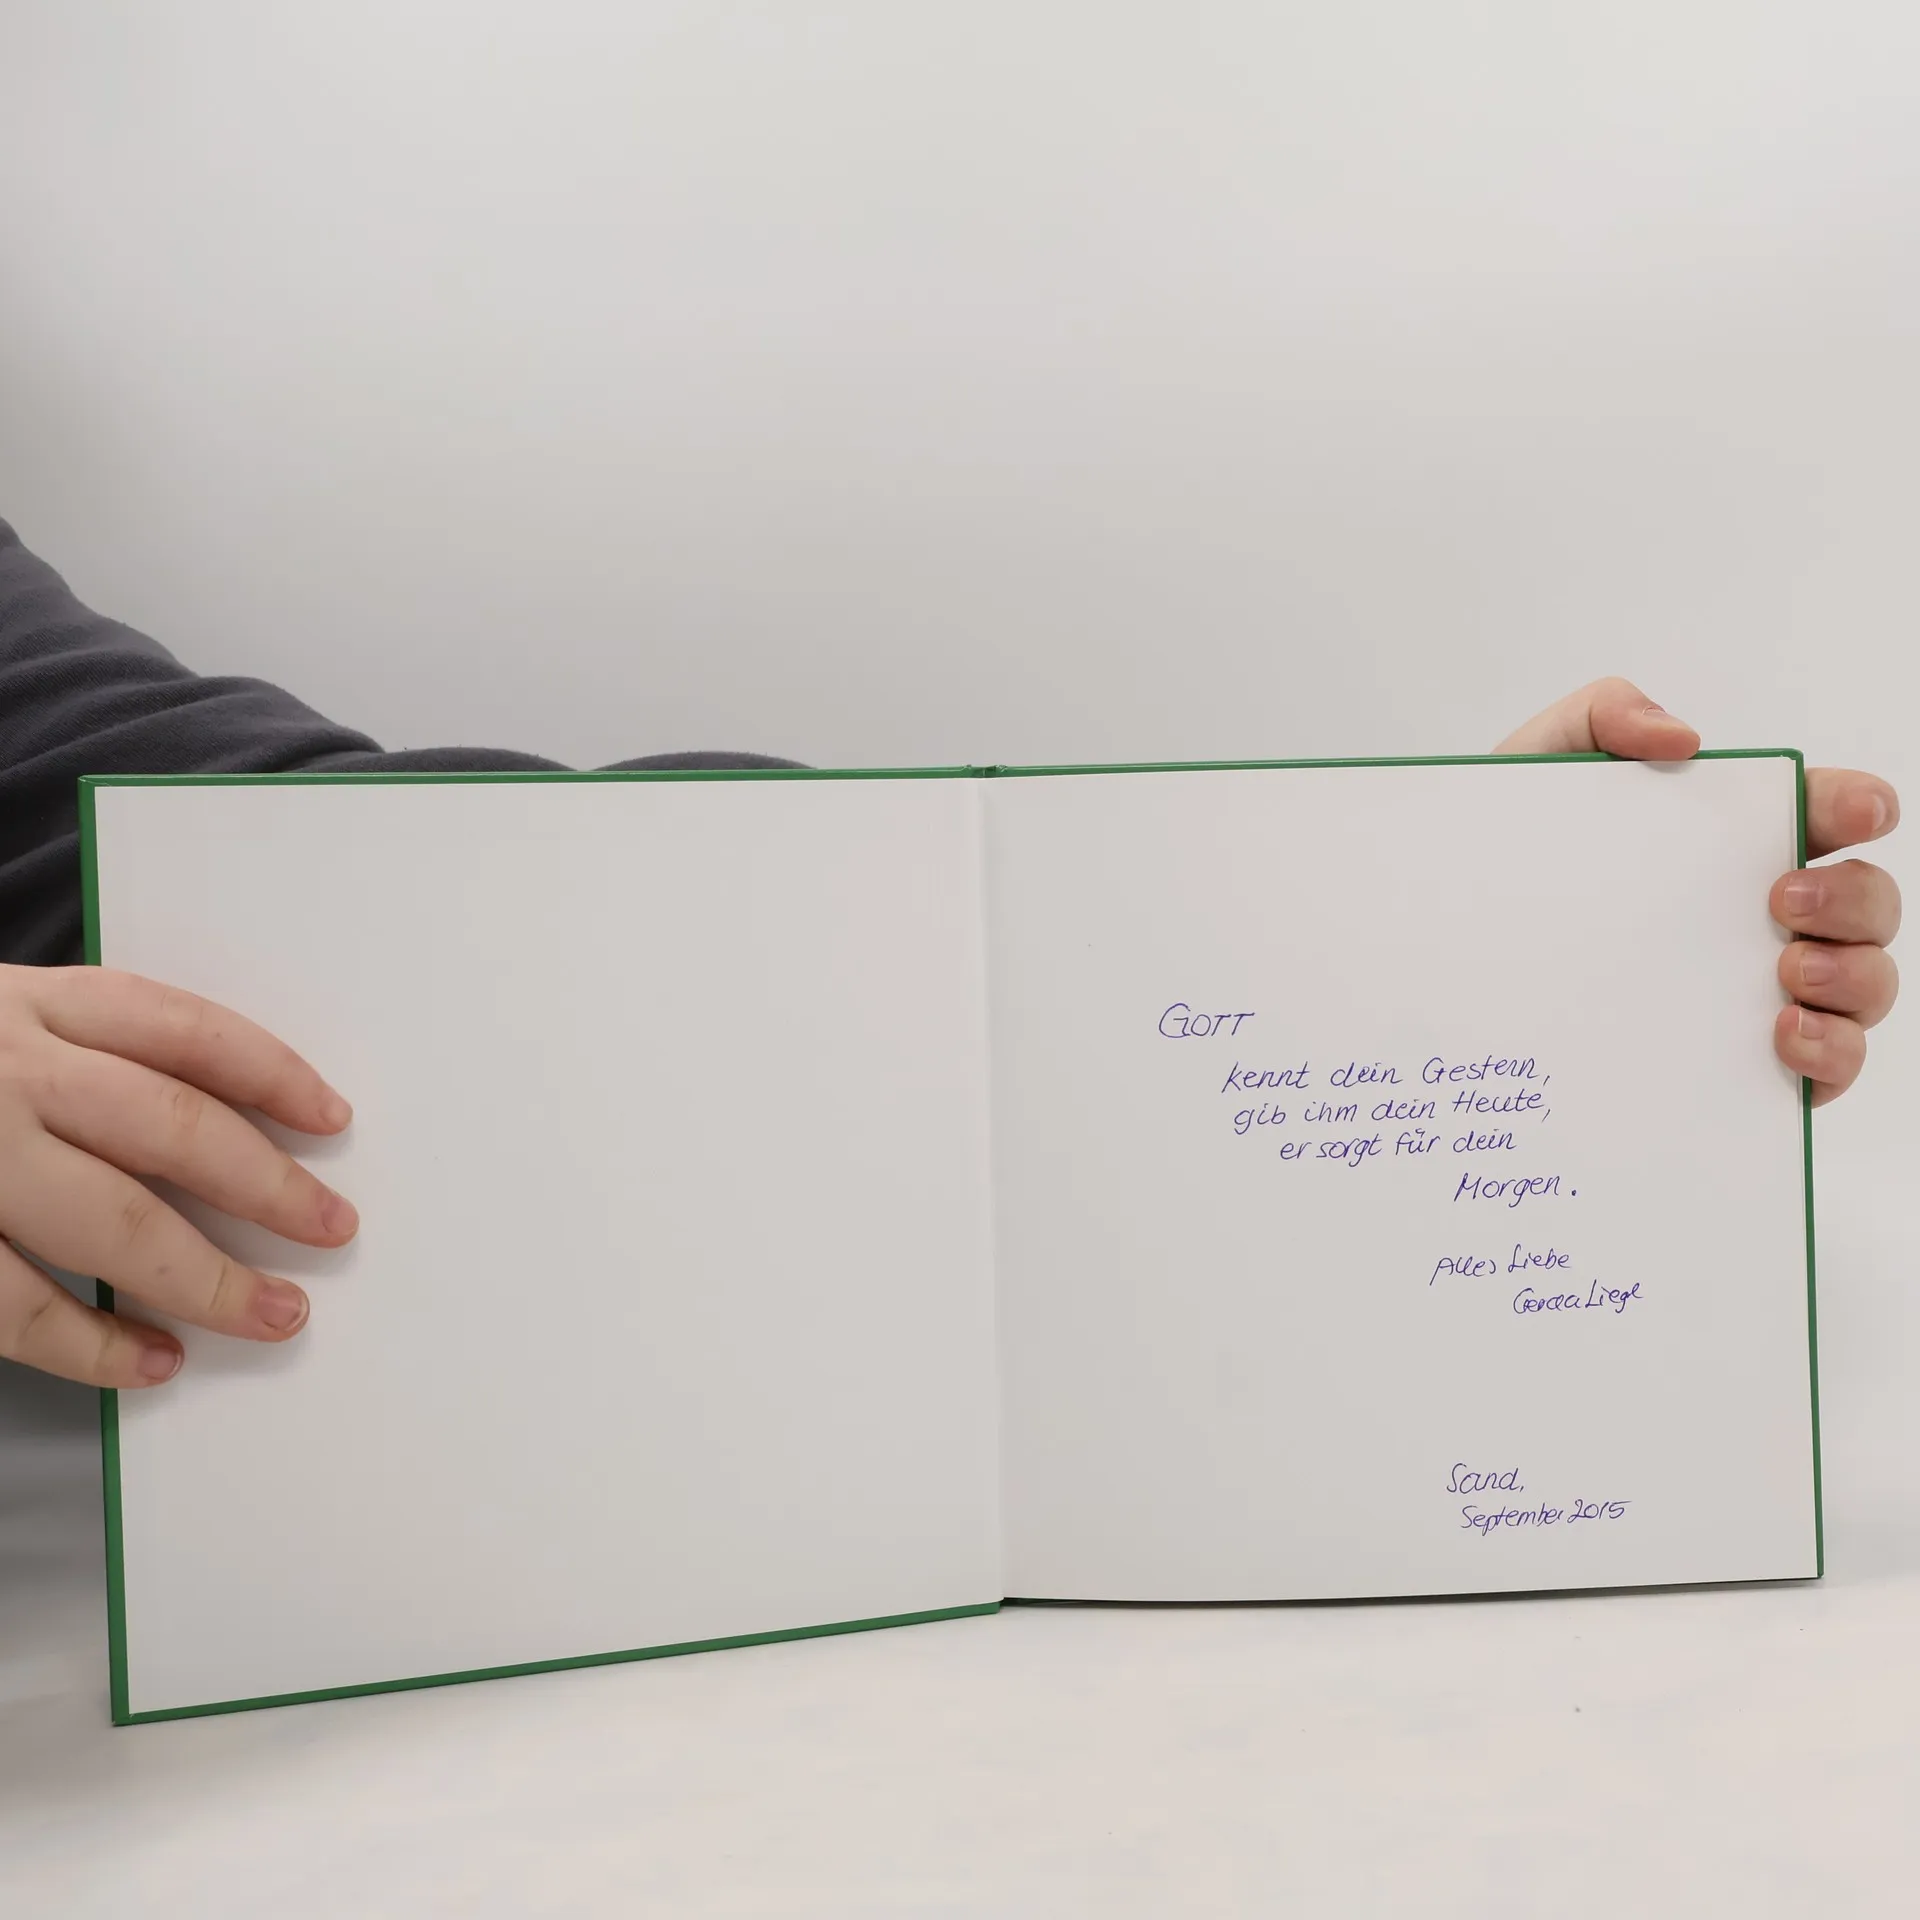 GOTT
kennt dein Gestern,
gib ihm dein Heute,
er sorgt für dein
Morgen.
Alles Liebe
Liegl
Sand,
September 2015